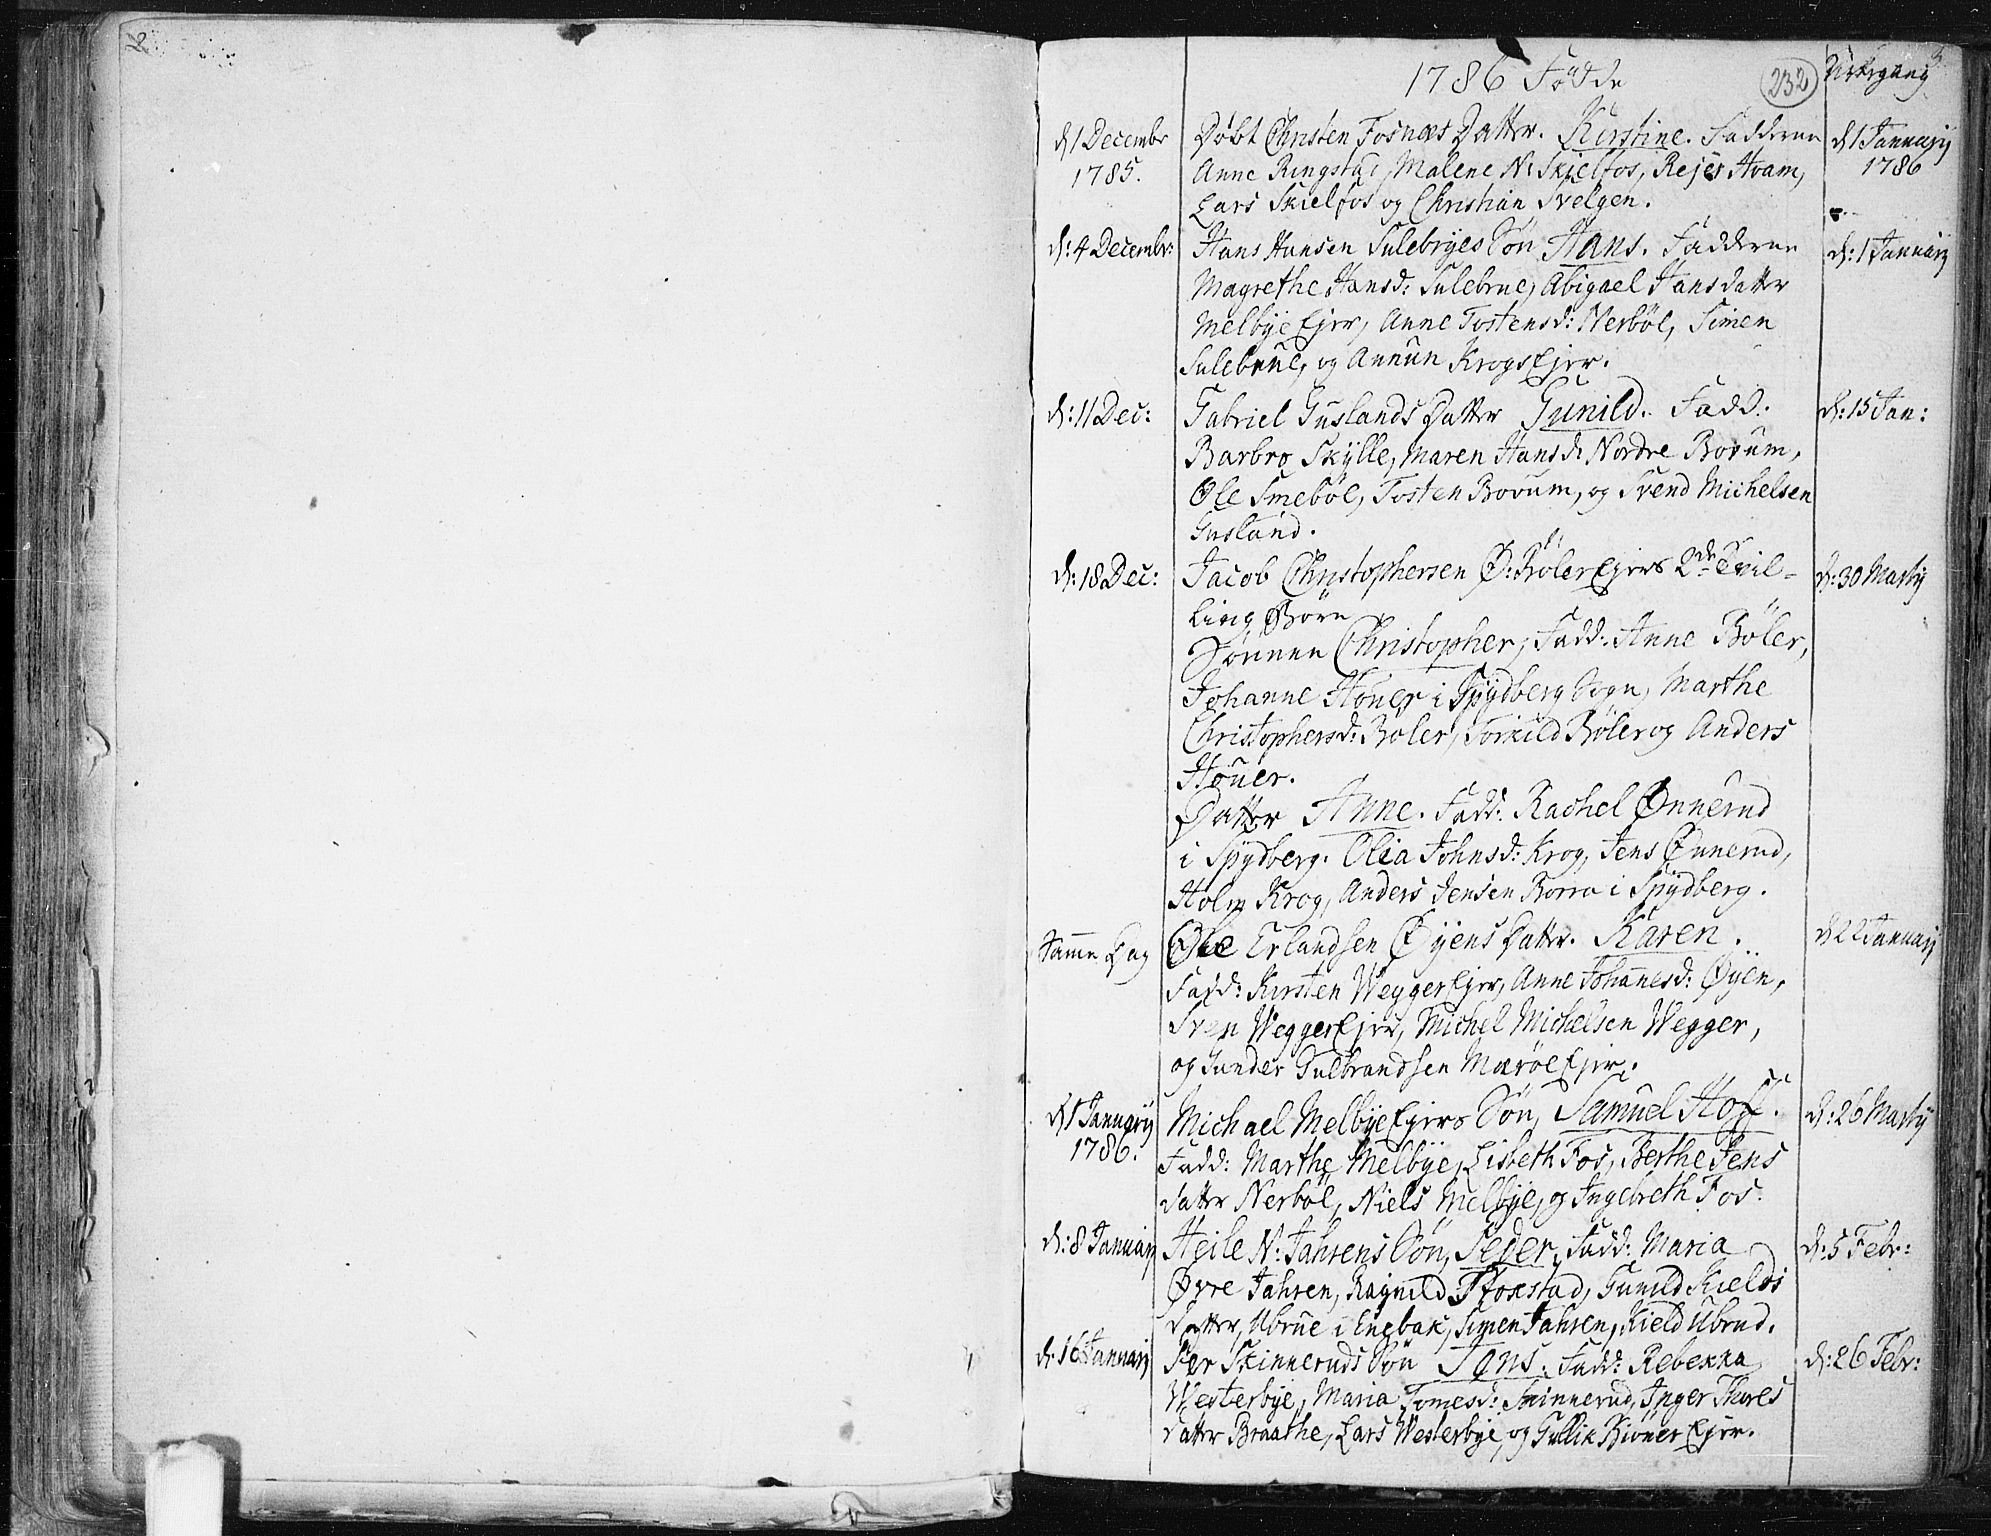 2
1786 Födde
232
Kirkgang
3
d 1 Decembr 1785.
Döbt Christen Fosnæs Datter. Kirstine. Fadderne
Anne Ringstad, Malene N: Skielfos, Rejer Hvam,
Lars Skielfos og Christian Svelgen.
d 1 Januarij 1786
d: 4 Decembr:
Hans Hansen Sulebryes Sön Hans. Fadderne
Magrethe Hansd: Sulebrue, Abigael Hansdatter
Melbye Ejer, Anne Tostensd: Nerböl, Simen
Sulebrue, og Annun Krogs Ejer.
d: 1 Januarij
d: 11 Dec:
Gabriel Guslands Datter Gunild. Fadd:
Barbro Skÿlle, Maren Hansd Nordre Bovum,
Ole Smeböl, Tosten Bovum, og Svend Michelsen
Gusland.
d: 15 Jan:
d: 18 Dec:
Jacob Christophersen Ø: Böler Ejers 2de Tvil-
ling Börn
Sönnen Christopher, Fadd: Anne Böler,
Johanne Höuer i Spÿdberg Sogn, Marthe
Christophersd: Böler, Torkild Böler og Anders
Höuer.
Datter Anne. Fadd: Rachel Ønnerud
i Spÿdberg. Olea Johnsd: Krog, Jens Ønnerud,
Holm Krog, Anders Jensen Borro i Spÿdberg.
d: 30 Martij
Samme Dag
Ole Erlandsen Øÿens Datter. Karen.
Fadd: Kirsten Wegger Ejer, Anne Johanesd: Øÿen,
Sven Wegger Ejer, Michel Michelsen Wegger,
og Gunder Gulbrandsen Mæröe Ejer.
d 22 Januarij
d 1 Januarij 1786.
Michael Melbÿe Ejers Sön, Samuel Hoff.
Fadd: Marthe Melbÿe, Lisbeth Fos, Berthe Jens
datter Nerböl, Niels Melbÿe, og Ingebreth Fos.
d: 26 Martij
d: 8 Januarij
Heile N: Jahrens Sön, Peder, Fadd: Maria
Øvre Jahren, Ragnild Floxstad, Gunild Kields
datter, Ubrue i Enebak, Simen Jahren, Kield Ubrud.
d: 5 Febr:
d: 16 Januarij
Per Skinneruds Sön Jens. Fadd: Rebekka
Westerbye, Maria Tomesd: Skinnerud, Inger Thores
datter Braathe, Lars Westerbye, og Gullik Kiöner Ejer.
d: 26 Febr: